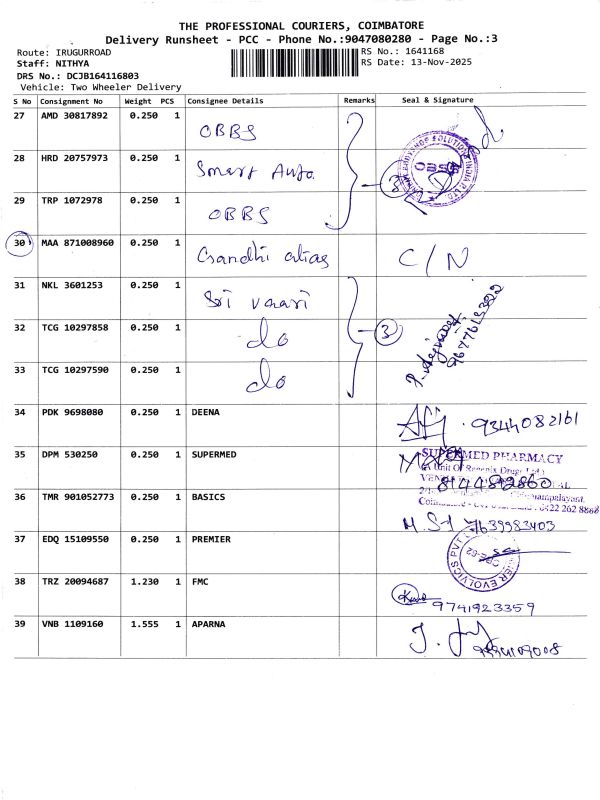 THE PROFESSIONAL COURIERS, COIMBATORE
Delivery Runsheet - PCC - Phone No.:9047080280 - Page No.:3
Route: IRUGURROAD
RS No.: 1641168
Staff: NITHYA
RS Date: 13-Nov-2025
DRS No.: DCJB164116803
Vehicle: Two Wheeler Delivery
S No Consignment No Weight PCS Consignee Details Remarks Seal & Signature
27 AMD 30817892 0.250 1 OBBS
28 HRD 20757973 0.250 1 Smart Auto. 3
29 TRP 1072978 0.250 1 OBBS
30 MAA 871008960 0.250 1 Gandhi atias C/N
31 NKL 3601253 0.250 1 Sri vaari
32 TCG 10297858 0.250 1 do 3
33 TCG 10297590 0.250 1 do
34 PDK 9698080 0.250 1 DEENA 9344082161
35 DPM 530250 0.250 1 SUPERMED SUPERMED PHARMACY
(A Unit Of
8144892860
36 TMR 901052773 0.250 1 BASICS
0422 262 8868
M. S 7639983403
37 EDQ 15109550 0.250 1 PREMIER
38 TRZ 20094687 1.230 1 FMC 9741923359
39 VNB 1109160 1.555 1 APARNA